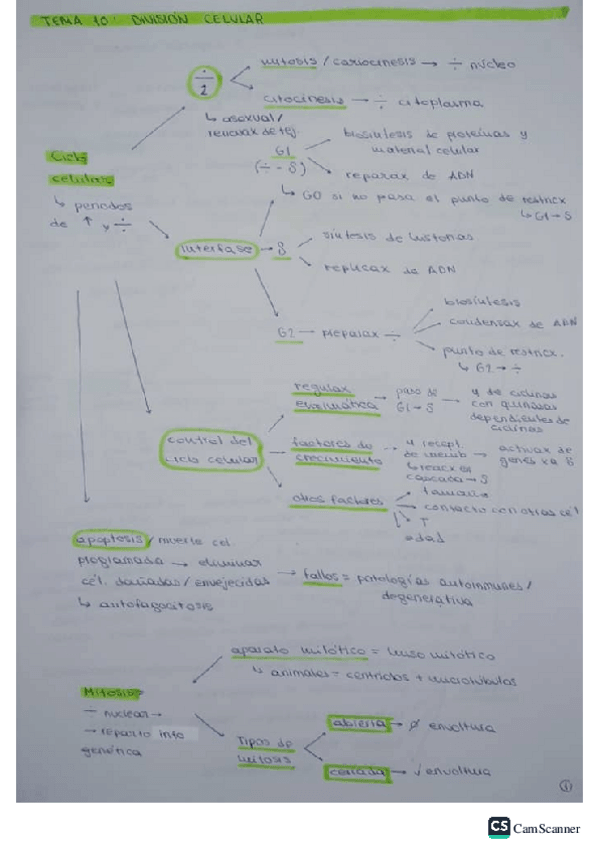 TEMA 10: DIVISIÓN CELULAR
÷
2
mitosis / cariocinesis → ÷ núcleo
citocinesis → ÷ citoplasma
↳ asexual/
renovax de tej.
Ciclo
celular
↳ periodos
de ↑ y ÷
G1
(÷ - S)
biosíntesis de proteínas y
material celular
reparax de ADN
↳ G0 si no pasa el punto de restricx
↳ G1 → S
interfase → S
síntesis de histonas
replicax de ADN
G2 — preparax ÷
biosíntesis
condensax de ADN
punto de restricx.
↳ G2 → ÷
control del
ciclo celular
regulax
enzimática
→ paso de
G1 → S
→ de ciclinas
con quinasas
dependientes de
ciclinas
factores de
crecimiento
→ recept.
de memb
↳ reacx en
cascada → S
→ activax de
genes xa S
otros factores
tamaño
contacto con otras cél
T
edad
apoptosis / muerte cel
programada → eliminar
cél. dañadas / envejecidas
↳ autofagocitosis
→ fallos = patologías autoinmunes /
degenerativa
Mitosis
÷ nuclear →
→ reparto info
genética
aparato mitótico = huso mitótico
↳ animales = centriolos + microtúbulos
Tipos de
mitosis
abierta → ∅ envoltura
cerrada → √ envoltura
1
CS CamScanner